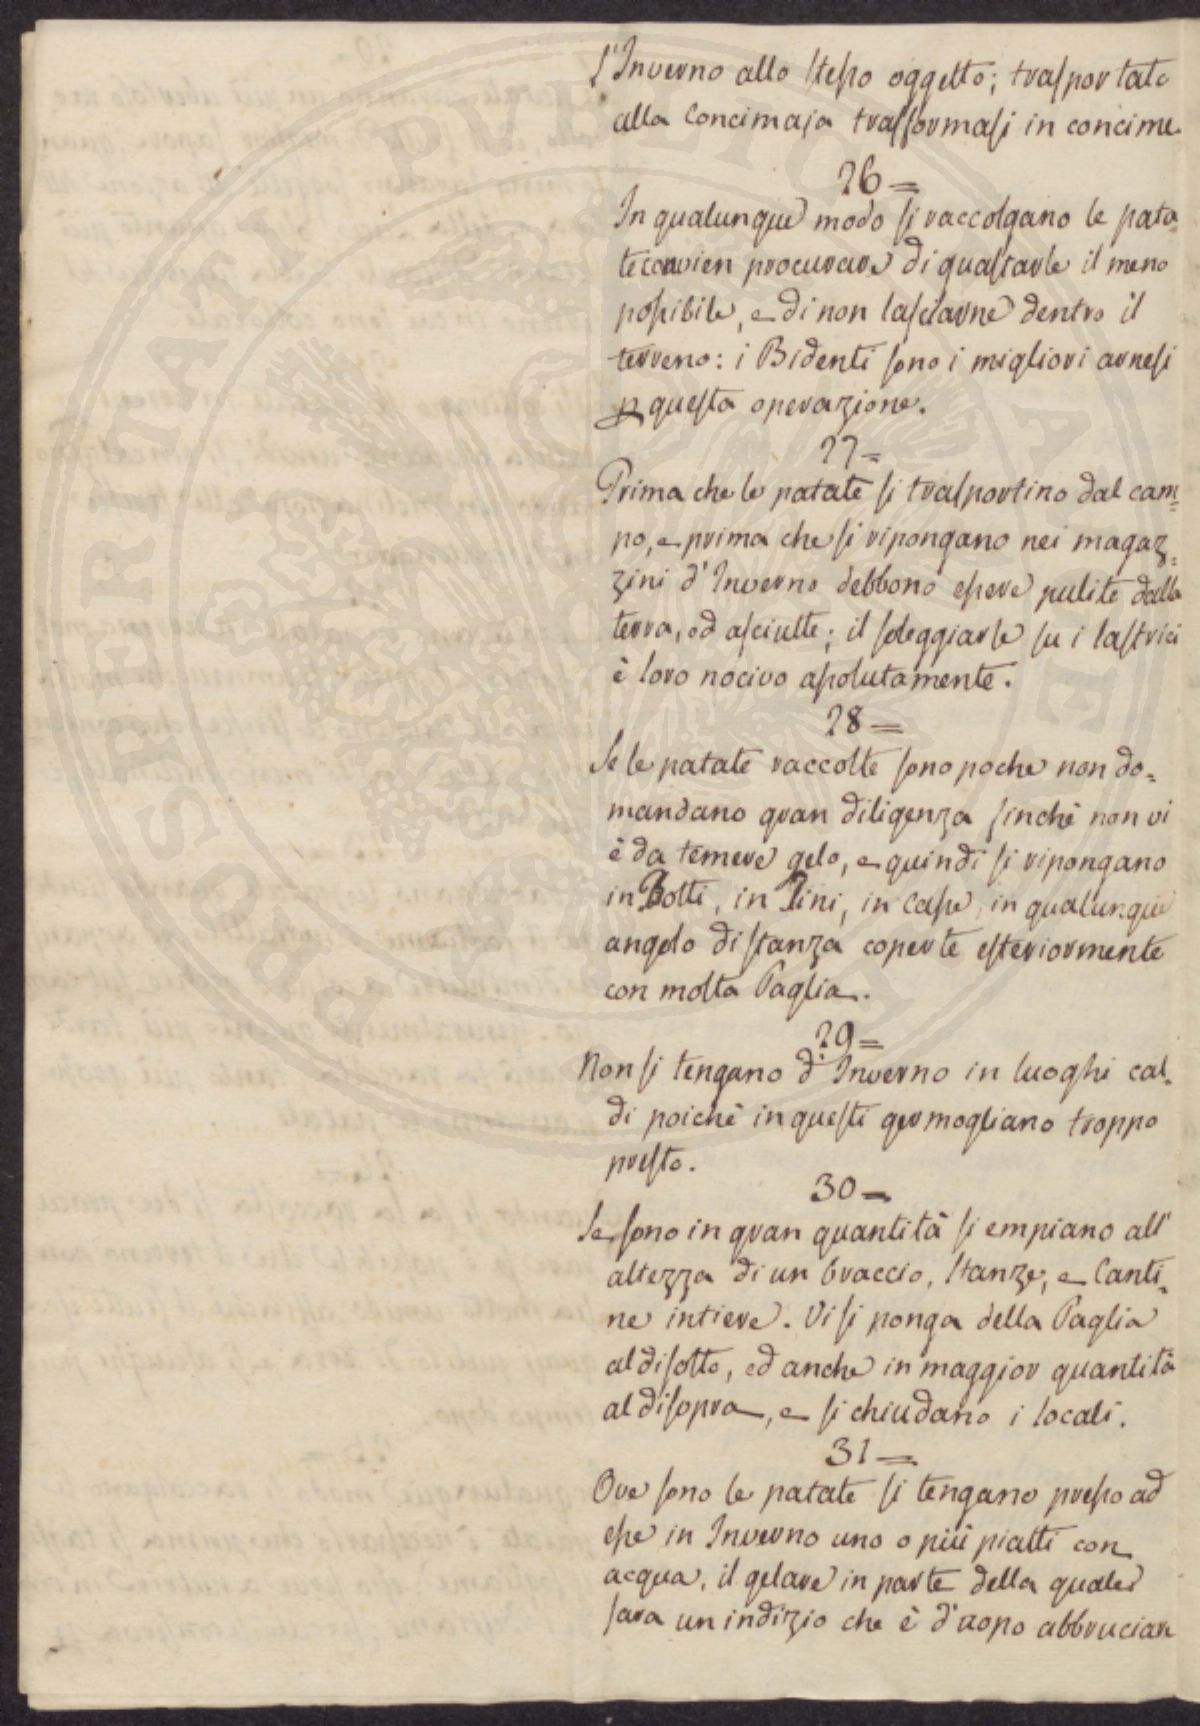 l'Inverno allo stesso oggetto; trasportato
alla Concimaja trasformasi in concime
26=
In qualunque modo si raccolgano le pata=
te convien procurare di guastarle il meno
possibile, e di non lasciarne dentro il
terreno: i Bidenti sono i migliori arnesi
p questa operazione.
27=
Prima che le patate si trasportino dal cam=
po, e prima che si ripongano nei magaz=
zini d'Inverno debbono essere pulite dalla
terra, ed asciutte; il soleggiarle su i lastrici
è loro nocivo assolutamente.
28=
Se le patate raccolte sono poche non do=
mandano gran diligenza finchè non vi
è da temere gelo, e quindi si ripongano
in Botti, in Tini, in Casse, in qualunque
angolo di stanza coperte esteriormente
con molta Paglia.
29=
Non si tengano d'Inverno in luoghi cal=
di poichè in questi germogliano troppo
presto.
30=
Se sono in gran quantità si empiano all'
altezza di un braccio, stanze, e Canti=
ne intiere. Vi si ponga della Paglia
al disotto, ed anche in maggior quantità
al disopra, e si chiudano i locali.
31=
Ove sono le patate si tengano presso ad
esse in Inverno uno o più piatti con
acqua, il gelare in parte della quale
sara un indizio che è d'uopo abbruciare